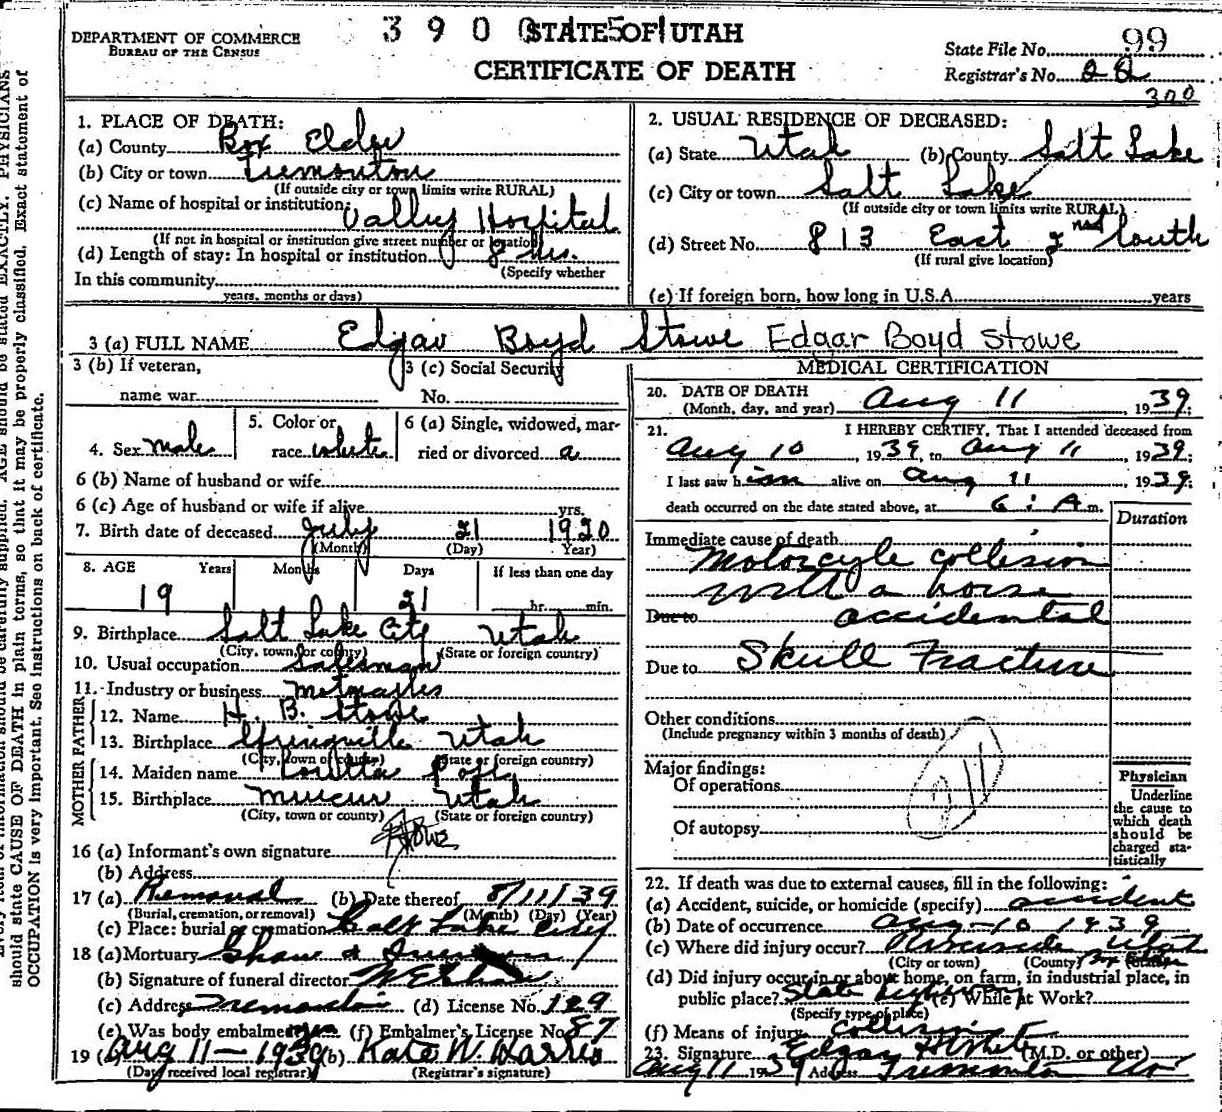 3 9 0 0 5
STATE OF UTAH
CERTIFICATE OF DEATH
DEPARTMENT OF COMMERCE
BUREAU OF THE CENSUS
State File No. 99
Registrar's No. 22
300
1. PLACE OF DEATH:
(a) County Box Elder
(b) City or town Tremonton
(If outside city or town limits write RURAL)
(c) Name of hospital or institution: Valley Hospital
(If not in hospital or institution give street number or location)
(d) Length of stay: In hospital or institution 8 hrs.
(Specify whether
In this community
years, months or days)
2. USUAL RESIDENCE OF DECEASED:
(a) State Utah (b) County Salt Lake
(c) City or town Salt Lake
(If outside city or town limits write RURAL)
(d) Street No. 813 East 2nd South
(If rural give location)
(e) If foreign born, how long in U.S.A. years
3 (a) FULL NAME Edgar Boyd Stowe Edgar Boyd Stowe
3 (b) If veteran,
name war
3 (c) Social Security
No.
4. Sex male
5. Color or
race white
6 (a) Single, widowed, mar-
ried or divorced
6 (b) Name of husband or wife
6 (c) Age of husband or wife if alive yrs.
7. Birth date of deceased July 21 1920
(Month) (Day) Year)
8. AGE Years Months Days If less than one day
19 21 hr. min.
9. Birthplace Salt Lake City Utah
(City, town, or county) (State or foreign country)
10. Usual occupation Salesman
11. Industry or business
FATHER
12. Name H. B. Stowe
13. Birthplace Springville Utah
(City, town or county) (State or foreign country)
MOTHER
14. Maiden name Loretta
15. Birthplace Mercur Utah
(City, town or county) (State or foreign country)
16 (a) Informant's own signature
(b) Address
17 (a) Removal (b) Date thereof 8/11/39
(Burial, cremation, or removal) (Month) (Day) (Year)
(c) Place: burial or cremation Salt Lake City
18 (a) Mortuary
(b) Signature of funeral director
(c) Address Tremonton (d) License No. 129
(e) Was body embalmed yes (f) Embalmer's License No. 87
19 (a) Aug 11-1939 (b) Kate W. Harris
(Day received local registrar) (Registrar's signature)
MEDICAL CERTIFICATION
20. DATE OF DEATH
(Month, day, and year) Aug 11, 1939.
21. I HEREBY CERTIFY, That I attended deceased from
Aug 10, 1939, to Aug 11, 1939.
I last saw him alive on Aug 11 1939.
death occurred on the date stated above, at 6: A m.
Duration
Immediate cause of death
Motorcycle collision
with a horse
Due to accidental
Due to Skull Fracture
Other conditions
(Include pregnancy within 3 months of death)
211
Major findings:
Of operations
Of autopsy
Physician
Underline
the cause to
which death
should be
charged sta-
tistically
22. If death was due to external causes, fill in the following:
(a) Accident, suicide, or homicide (specify) accident
(b) Date of occurrence Aug-10 1939
(c) Where did injury occur? Riverside Utah Box Elder
(City or town) (County) (State)
(d) Did injury occur in or about home, on farm, in industrial place, in
public place? State highway (e) While at Work?
(Specify type of place)
(f) Means of injury collision
23. Signature Edgar (M.D. or other)
Aug 11 1939 Address Tremonton
should state CAUSE OF DEATH in plain terms, so that it may be properly classified. Exact statement of
OCCUPATION is very important. See instructions on back of certificate.